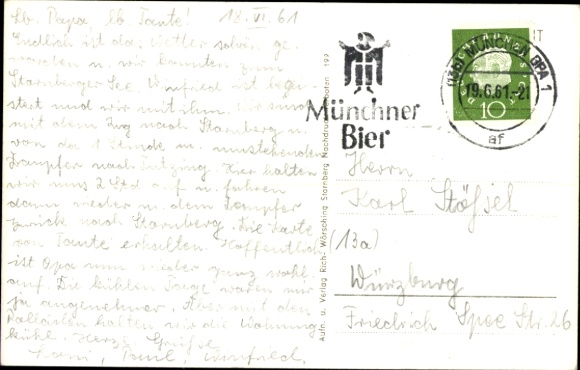 Lb. Papa, lb Tante! 18.VI.61
Endlich ist das Wetter schön ge-
worden u. wir konnten zum
Starnberger See. Winfried ist begei-
stert und wir mit ihm. Wir sind
mit dem Zug nach Starnberg u.
von da 1 Stunde m. umstehenden
Dampfer nach Tutzing. Hier halten
wir uns 2 Std auf u. fahren
dann wieder m. dem Dampfer
zurück nach Starnberg. Die Karte
von Tante erhalten. Hoffentlich
ist Opa nun wieder ganz wohl
auf. Die kühlen Tage waren mir
ja angenehmer. Aber mit den
Rolladen halten wir die Wohnung
kühl. Herzl. Grüße
Winfried
Aufn. u. Verlag Rich. Wörsching Starnberg Nachdruck verboten 199
Münchner
Bier
(13b) MÜNCHEN BPA 1
19.6.61.-21
af
10
Herrn
Karl Stößel
13a)
Würzburg
Friedrich Spee Str. 26